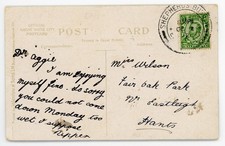 POST CARD
SHEPHERDS BUSH
Dr Aggie
I am enjoying
myself fine. So sorry
you could not come
down Monday too
wet I suppose
Miss Wilson
Fair Oak Park
Nr Eastleigh
Hants